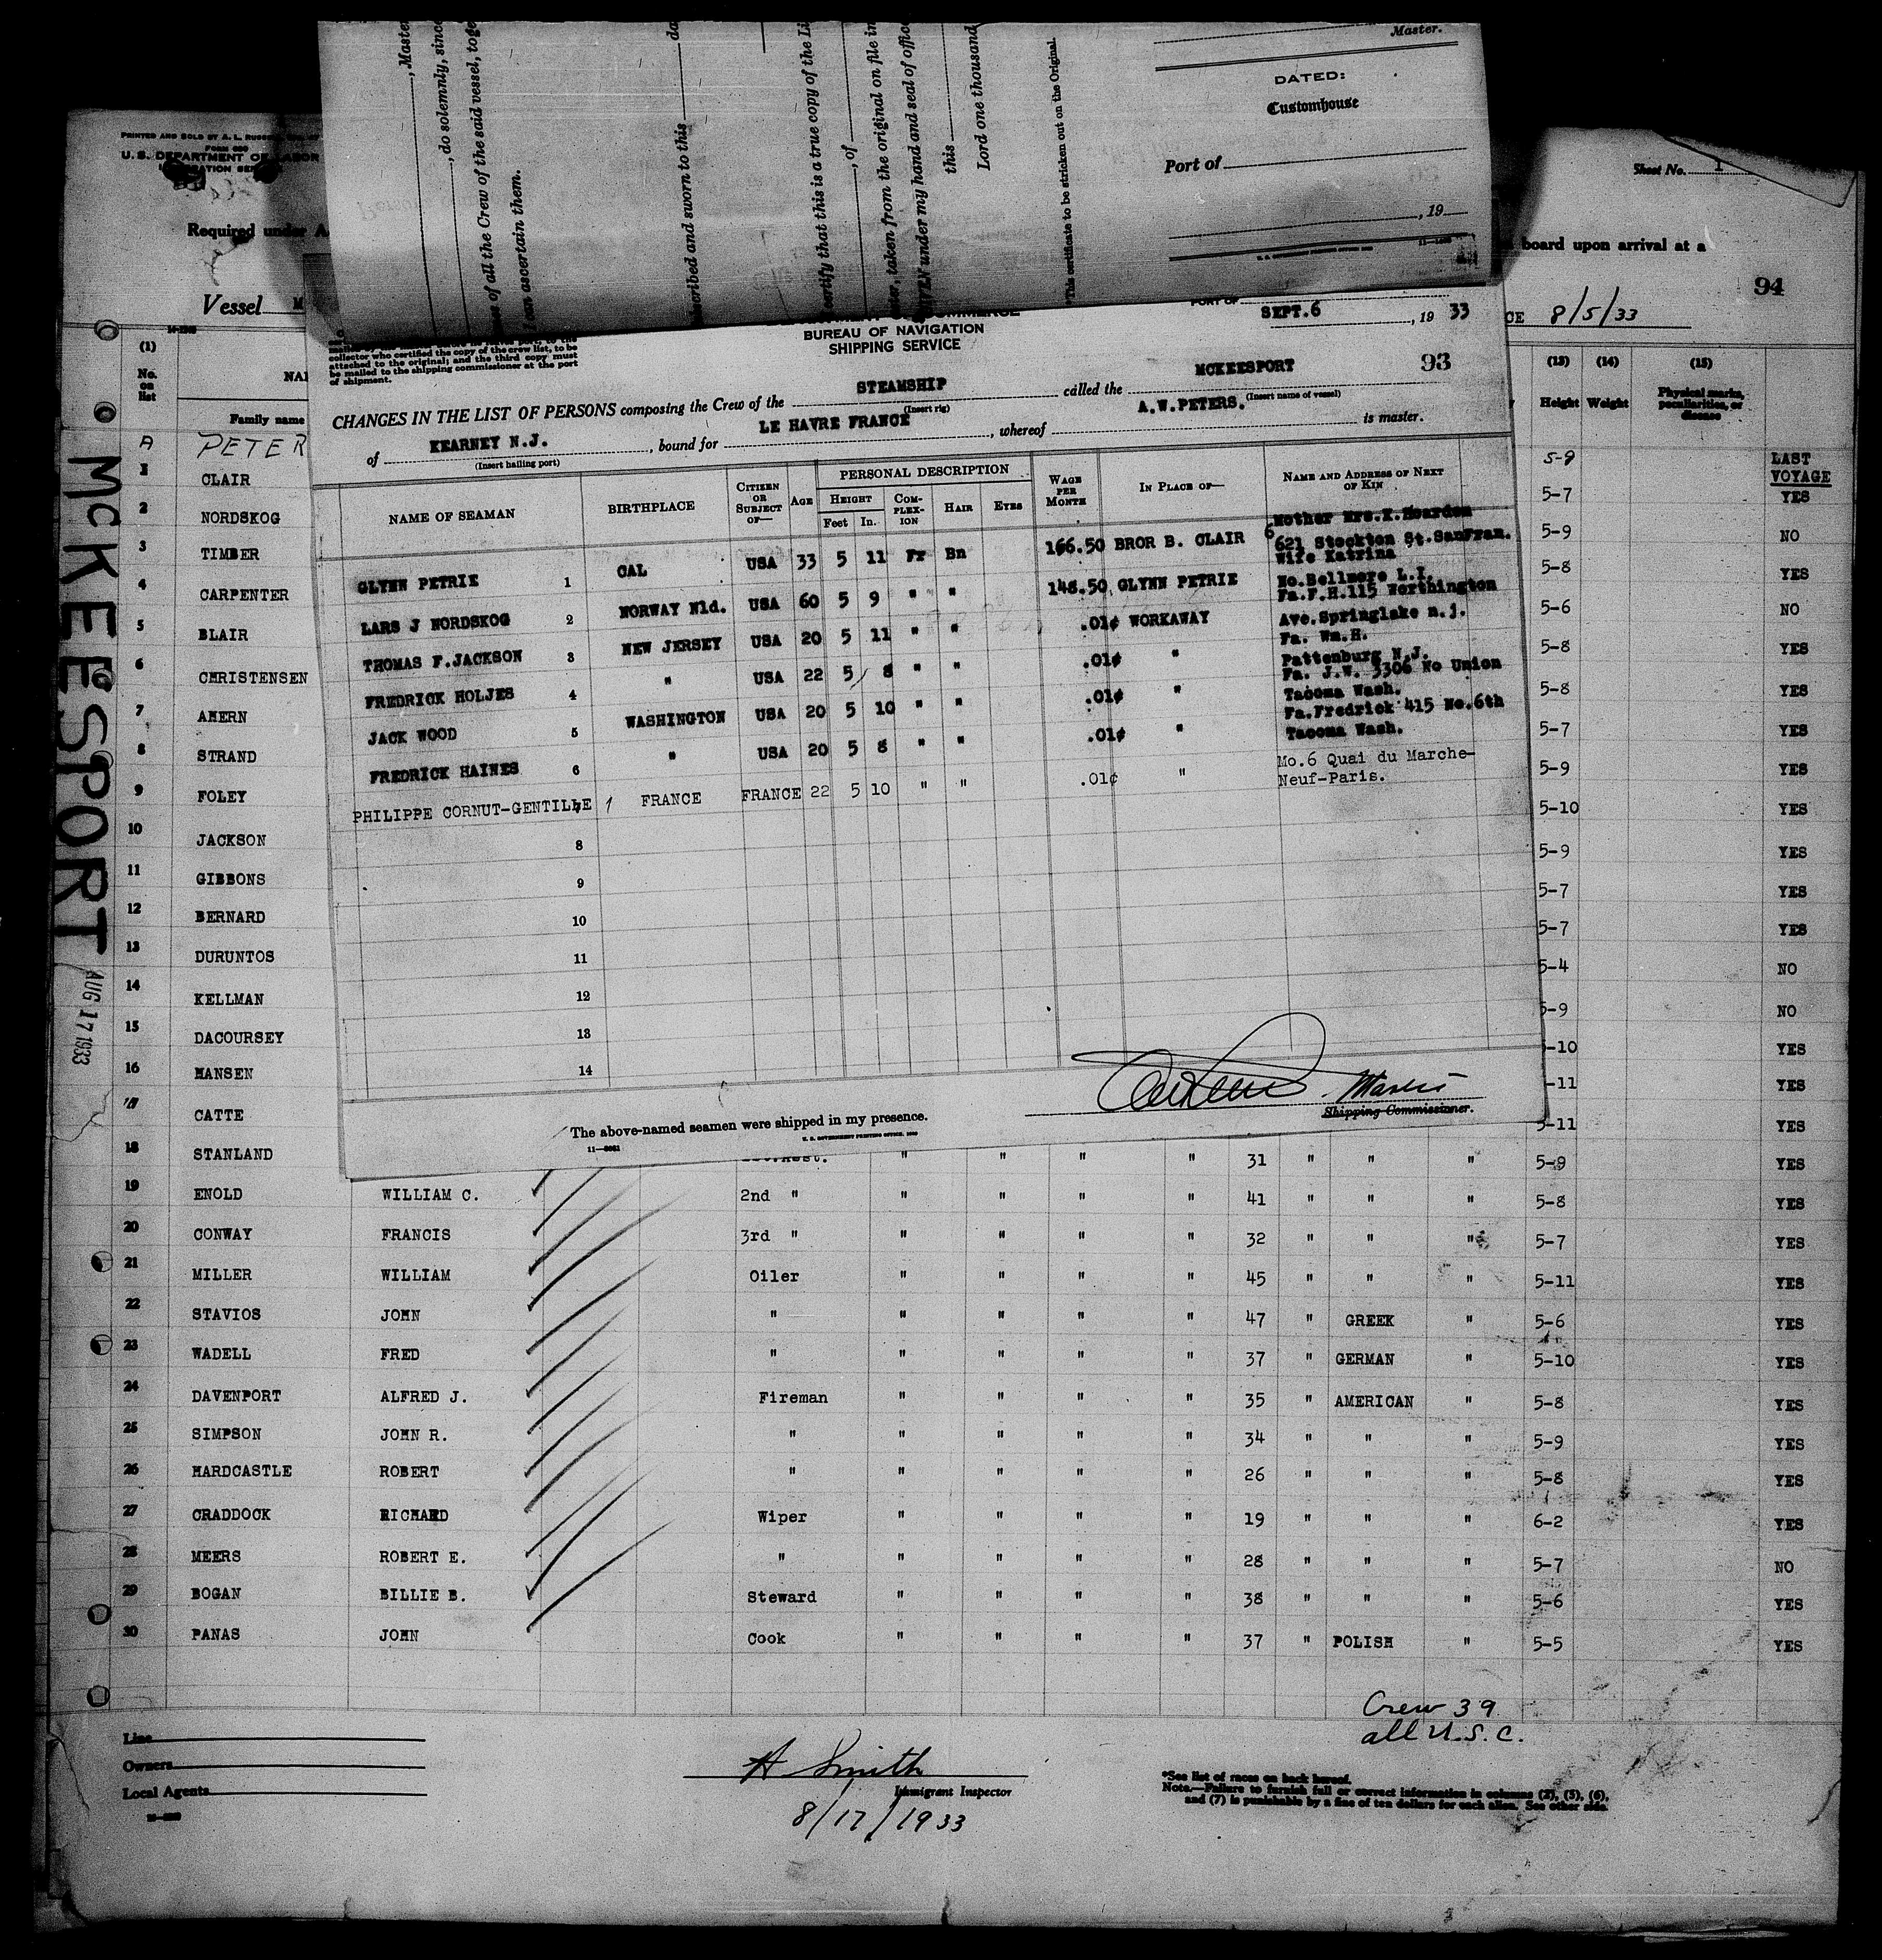 , Master
, do solemnly, since
of all the Crew of the said vessel, toge
I can ascertain them.
scribed and sworn to this
certify that this is a true copy of the Li
, of
, taken from the original on file in
under my hand and seal of offic
this
Lord one thousand
*This certificate to be stricken out on the Original.
Master.
DATED:
Customhouse
Port of
, 19
PRINTED AND SOLD BY A. L.
U. S. DEPARTMENT OF LABOR
Required under A
board upon arrival at a
Sheet No. 1
94
Vessel M
CE 8/5/33
McKEESPORT
AUG 17 1933
collector who certified the copy of the crew list, to be
attached to the original; and the third copy must
be mailed to the shipping commissioner at the port
of shipment.
BUREAU OF NAVIGATION
SHIPPING SERVICE
PORT OF
SEPT.6 , 19 33
93
CHANGES IN THE LIST OF PERSONS composing the Crew of the STEAMSHIP called the MCKEESPORT
(Insert rig) (Insert name of vessel)
of KEARNEY N.J. , bound for LE HAVRE FRANCE , whereof A.W.PETERS. is master.
(Insert hailing port)
NAME OF SEAMAN BIRTHPLACE CITIZEN OR SUBJECT OF— AGE PERSONAL DESCRIPTION WAGE PER MONTH IN PLACE OF— NAME AND ADDRESS OF NEXT OF KIN
HEIGHT COMPLEXION HAIR EYES
Feet In.
GLYNN PETRIE 1 CAL USA 33 5 11 Fr Bn 166.50 BROR B. CLAIR Mother Mrs.K.Reardon
621 Stockton St.SanFran.
LARS J NORDSKOG 2 NORWAY Nld. USA 60 5 9 " " 148.50 GLYNN PETRIE Wife Katrina
No.Bellmore L.I.
THOMAS F.JACKSON 3 NEW JERSEY USA 20 5 11 " " .01¢ WORKAWAY Fa.F.H.115 Worthington
Ave.Springlake n.j.
FREDRICK HOLJES 4 " USA 22 5 8 " " .01¢ " Fa. Wm.H.
Pattenburg N.J.
JACK WOOD 5 WASHINGTON USA 20 5 10 " " .01¢ " Fa. J.W. 3306 No Union
Tacoma Wash.
FREDRICK HAINES 6 " USA 20 5 8 " " .01¢ " Fa.Fredrick 415 No.6th
Tacoma Wash.
PHILIPPE CORNUT-GENTILLE 7 FRANCE FRANCE 22 5 10 " " .01¢ " Mo.6 Quai du Marche-
Neuf-Paris.
8
9
10
11
12
13
14
The above-named seamen were shipped in my presence.
Master
Shipping Commissioner.
U. S. GOVERNMENT PRINTING OFFICE
(1) No. on list
Family name
(13) Height
(14) Weight
(15) Physical marks, peculiarities, or disease
LAST VOYAGE
A PETER 5-9
1 CLAIR 5-7 YES
2 NORDSKOG 5-9 NO
3 TIMBER 5-8 YES
4 CARPENTER 5-6 NO
5 BLAIR 5-8 YES
6 CHRISTENSEN 5-8 YES
7 AHERN 5-7 YES
8 STRAND 5-9 YES
9 FOLEY 5-10 YES
10 JACKSON 5-9 YES
11 GIBBONS 5-7 YES
12 BERNARD 5-7 YES
13 DURUNTOS 5-4 NO
14 KELLMAN 5-9 NO
15 DACOURSEY -10 YES
16 HANSEN -11 YES
17 CATTE 5-11 YES
18 STANLAND " " " " 31 " " " 5-9 YES
19 ENOLD WILLIAM C. 2nd " " " " " 41 " " " 5-8 YES
20 CONWAY FRANCIS 3rd " " " " " 32 " " " 5-7 YES
21 MILLER WILLIAM Oiler " " " " 45 " " " 5-11 YES
22 STAVIOS JOHN " " " " " 47 " GREEK " 5-6 YES
23 WADELL FRED " " " " " 37 " GERMAN " 5-10 YES
24 DAVENPORT ALFRED J. Fireman " " " " 35 " AMERICAN " 5-8 YES
25 SIMPSON JOHN R. " " " " " 34 " " " 5-9 YES
26 HARDCASTLE ROBERT " " " " " 26 " " " 5-8 YES
27 CRADDOCK RICHARD Wiper " " " " 19 " " " 6-2 YES
28 MEERS ROBERT E. " " " " " 28 " " " 5-7 NO
29 BOGAN BILLIE B. Steward " " " " 38 " " " 5-6 YES
30 PANAS JOHN Cook " " " " 37 " POLISH " 5-5 YES
Crew 39
all U.S.C.
Line
Owners
Local Agents
A Smith
Immigrant Inspector
8/17/1933
*See list of races on back hereof.
Note.—Failure to furnish full or correct information in columns (2), (5), (6),
and (7) is punishable by a fine of ten dollars for each alien. See other side.